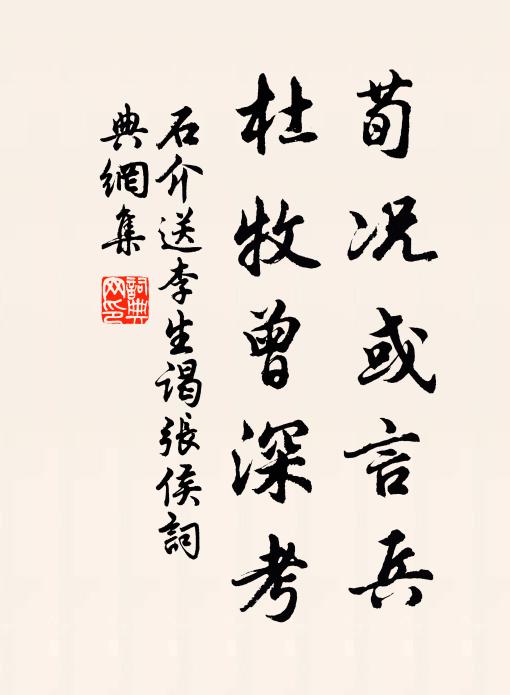 荀况或言兵
杜牧曾深考
石介送李生谒張侯詞
典網集
詞典
网印